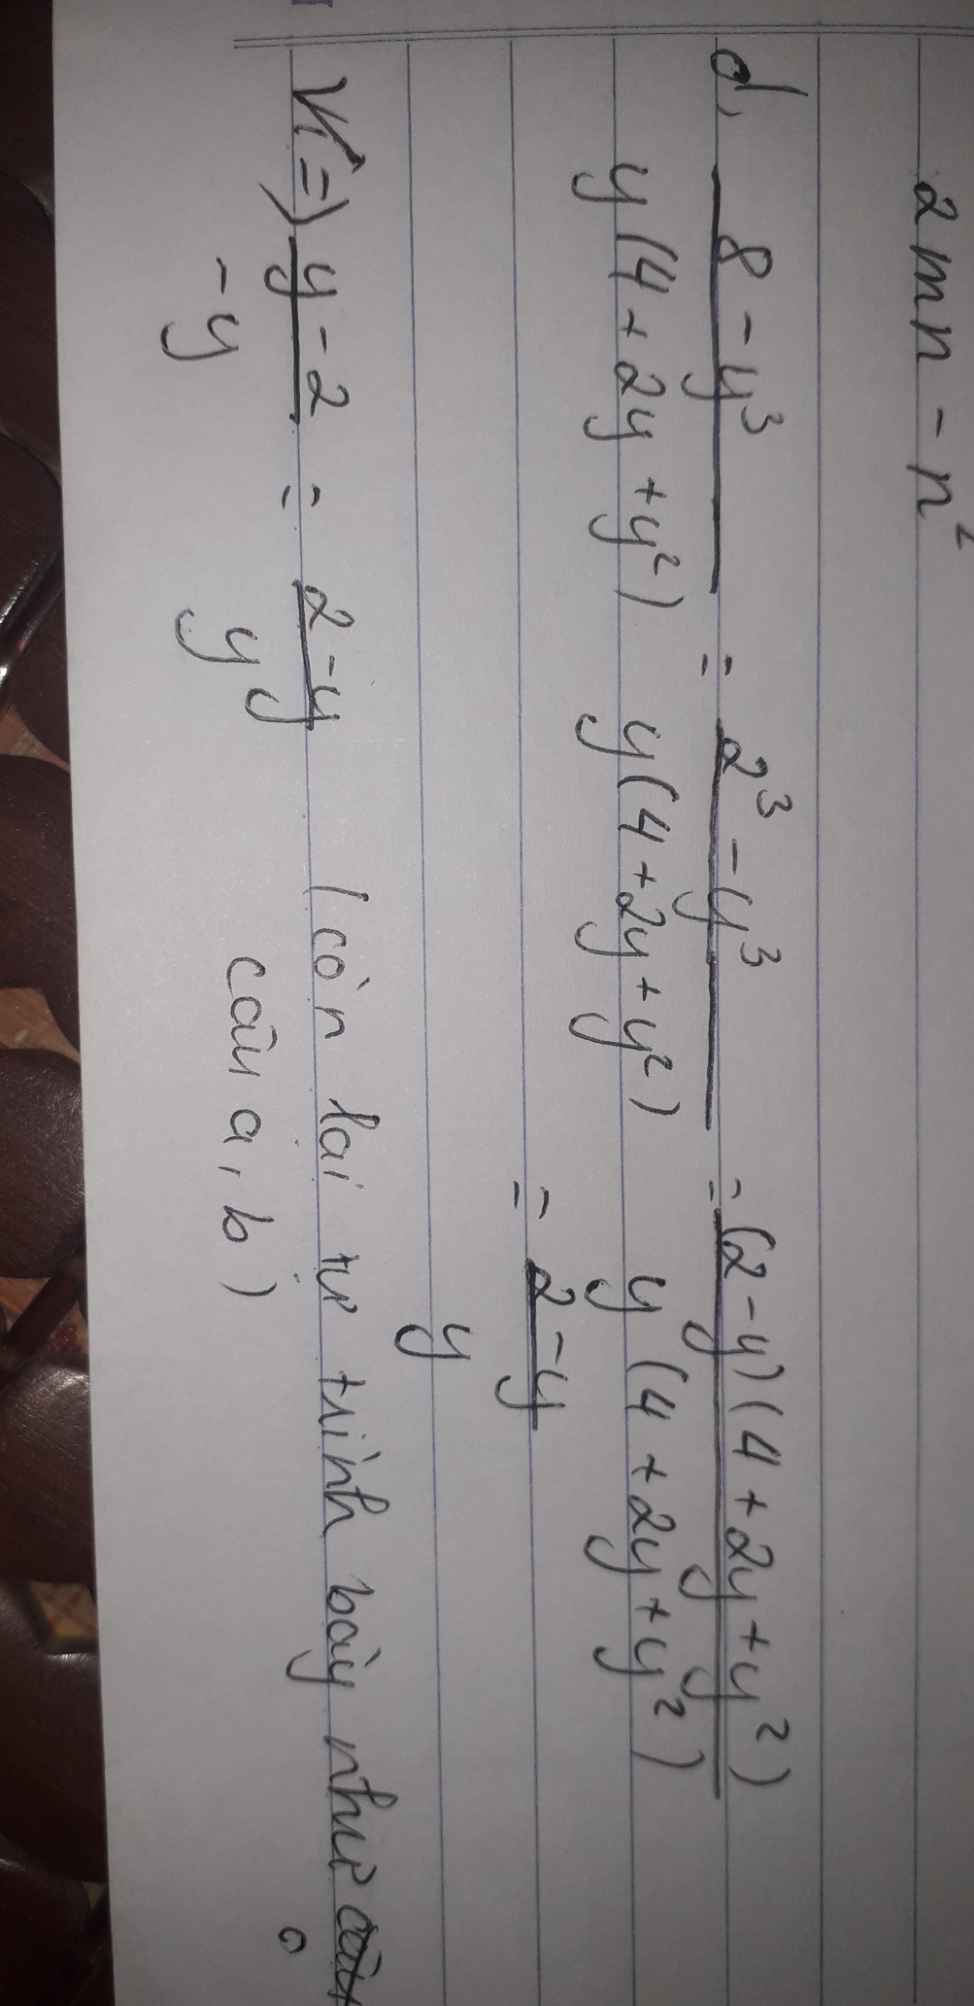 2mn - n²
d, 8 - y³ / y(4 + 2y + y²) = 2³ - y³ / y(4 + 2y + y²) = (2 - y)(4 + 2y + y²) / y(4 + 2y + y²)
= 2 - y / y
=> y - 2 / - y = 2 - y / y (còn lại tự trình bày như
câu a, b)